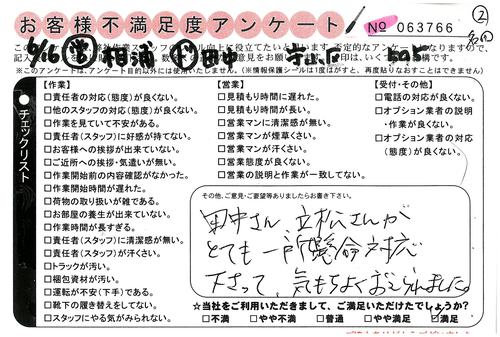 お客様不満足度アンケート
No 063766
②
6/16 相浦 田中
※このアンケートは、アンケート目的以外には使用いたしません。（情報保護シールは1度はがすと、再度貼りなおすことはできません）
チェックリスト
【作業】
□責任者の対応（態度）が良くない。
□他のスタッフの対応（態度）が良くない。
□作業を見ていて不安がある。
□責任者（スタッフ）に好感が持てない。
□お客様への挨拶が出来ていない。
□ご近所への挨拶・気遣いが無い。
□作業開始前の内容確認がなかった。
□作業開始時間が遅れた。
□荷物の取り扱いが雑である。
□お部屋の養生が出来ていない。
□作業時間が長すぎる。
□責任者（スタッフ）に清潔感が無い。
□責任者（スタッフ）が汗くさい。
□トラックが汚い。
□梱包資材が汚い。
□運転が不安（下手）である。
□靴下の履き替えをしてない。
□スタッフにやる気がみられない。
【営業】
□見積もり時間に遅れた。
□見積もり時間が長い。
□営業マンに清潔感が無い。
□営業マンが煙草くさい。
□営業マンが汗くさい。
□営業態度が良くない。
□営業の説明と作業が一致してない。
【受付・その他】
□電話の対応が良くない。
□オプション業者の説明・作業が良くない。
□オプション業者の対応（態度）が良くない。
その他、ご意見・ご要望等ありましたらお書き下さい。
田中さん、立松さんが
とても一所懸命対応
下さって、気もちよくおえられました。
☆当社をご利用いただきまして、ご満足いただけたでしょうか？
□不満 □やや不満 □普通 □やや満足 ☑満足